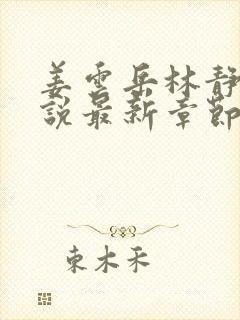 姜雲岳林靜
說最新章節
東木禾